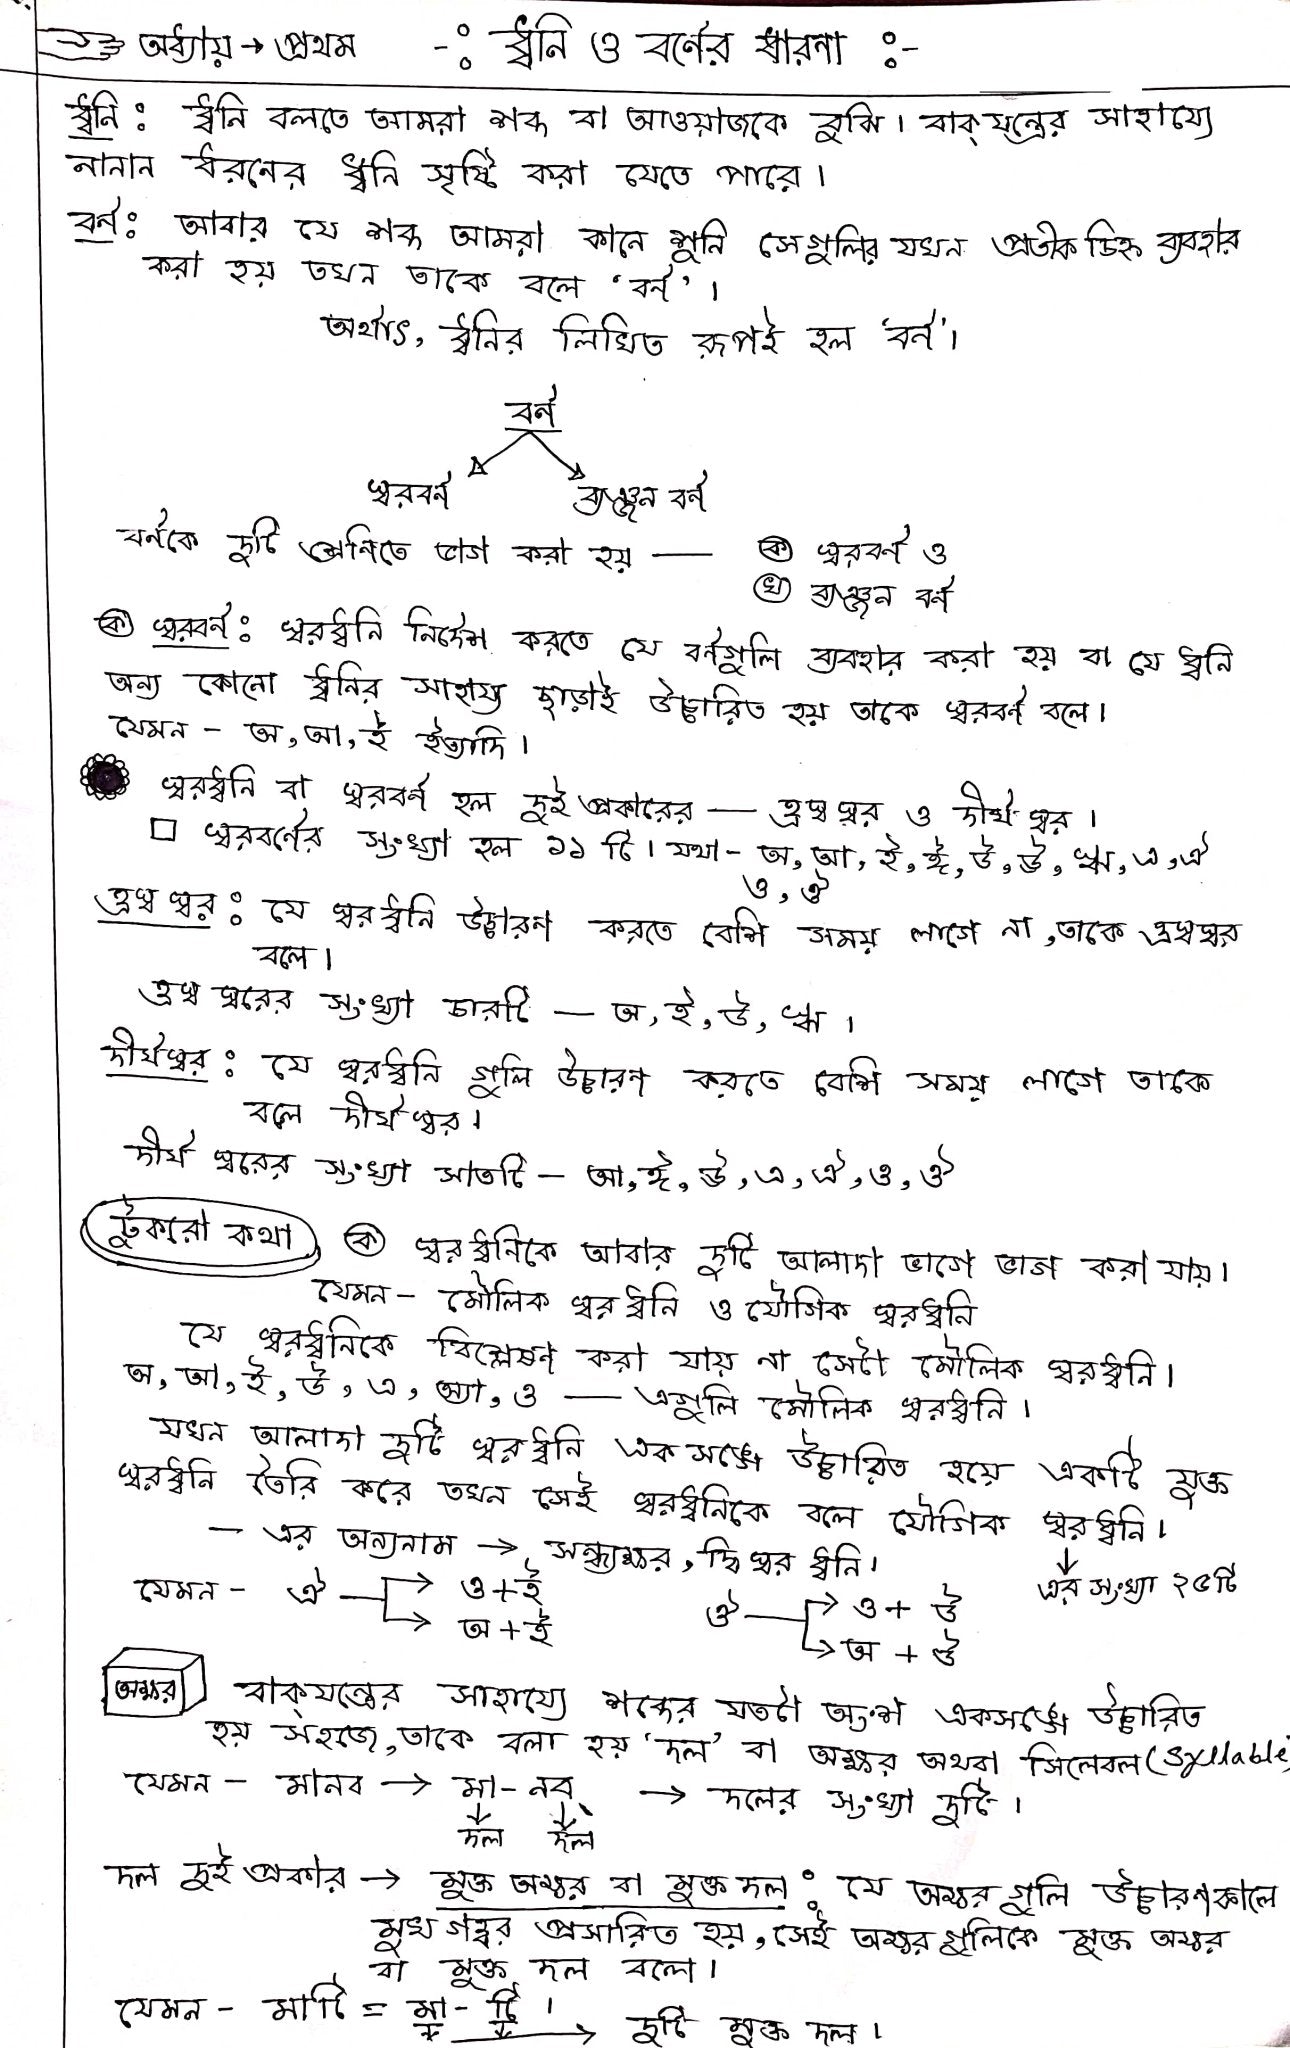 অধ্যায় → প্রথম -ঃ ধ্বনি ও বর্ণের ধারনা ঃ-
ধ্বনি ঃ ধ্বনি বলতে আমরা শব্দ বা আওয়াজকে বুঝি। বাক্‌যন্ত্রের সাহায্যে
নানান ধরনের ধ্বনি সৃষ্টি করা যেতে পারে।
বর্ন ঃ আবার যে শব্দ আমরা কানে শুনি সেগুলির যখন প্রতীক চিহ্ন ব্যবহার
করা হয় তখন তাকে বলে 'বর্ন'।
অর্থাৎ, ধ্বনির লিখিত রূপই হল 'বর্ন'।
বর্ন
স্বরবর্ন ব্যঞ্জন বর্ন
বর্নকে দুটি শ্রেনিতে ভাগ করা হয় — ক স্বরবর্ন ও
খ ব্যঞ্জন বর্ন
ক স্বরবর্ন ঃ স্বরধ্বনি নির্দেশ করতে যে বর্নগুলি ব্যবহার করা হয় বা যে ধ্বনি
অন্য কোনো ধ্বনির সাহায্য ছাড়াই উচ্চারিত হয় তাকে স্বরবর্ন বলে।
যেমন - অ, আ, ই ইত্যাদি।
স্বরধ্বনি বা স্বরবর্ন হল দুই প্রকারের — হ্রস্ব স্বর ও দীর্ঘ স্বর।
□ স্বরবর্ণের সংখ্যা হল ১১ টি। যথা - অ, আ, ই, ঈ, উ, ঊ, ঋ, এ, ঐ
ও, ঔ
হ্রস্ব স্বর ঃ যে স্বরধ্বনি উচ্চারণ করতে বেশি সময় লাগে না, তাকে হ্রস্বস্বর
বলে।
হ্রস্ব স্বরের সংখ্যা চারটি — অ, ই, উ, ঋ ।
দীর্ঘস্বর ঃ যে স্বরধ্বনি গুলি উচ্চারণ করতে বেশি সময় লাগে তাকে
বলে দীর্ঘস্বর।
দীর্ঘ স্বরের সংখ্যা সাতটি — আ, ঈ, ঊ, এ, ঐ, ও, ঔ
টুকরো কথা ক স্বরধ্বনিকে আবার দুটি আলাদা ভাগে ভাগ করা যায়।
যেমন - মৌলিক স্বরধ্বনি ও যৌগিক স্বরধ্বনি
যে স্বরধ্বনিকে বিশ্লেষণ করা যায় না সেটা মৌলিক স্বরধ্বনি।
অ, আ, ই, উ, এ, অ্যা, ও — এগুলি মৌলিক স্বরধ্বনি।
যখন আলাদা দুটি স্বরধ্বনি এক সঙ্গে উচ্চারিত হয়ে একটি যুক্ত
স্বরধ্বনি তৈরি করে তখন সেই স্বরধ্বনিকে বলে যৌগিক স্বরধ্বনি।
- এর অন্যনাম → সন্ধ্যক্ষর, দ্বিস্বর ধ্বনি। ↓
যেমন - ঐ → ও + ই ঔ → ও + উ এর সংখ্যা ২৫টি
→ অ + ই → অ + উ
অক্ষর বাক্‌যন্ত্রের সাহায্যে শব্দের যতটা অংশ একসঙ্গে উচ্চারিত
হয় সহজে, তাকে বলা হয় 'দল' বা অক্ষর অথবা সিলেবল (syllable)
যেমন - মানব → মা - নব → দলের সংখ্যা দুটি।
↓ ↓
দল দল
দল দুই প্রকার → মুক্ত অক্ষর বা মুক্ত দল ঃ যে অক্ষর গুলি উচ্চারণকালে
মুখ গহ্বর প্রসারিত হয়, সেই অক্ষরগুলিকে মুক্ত অক্ষর
বা মুক্ত দল বলে।
যেমন - মাটি = মা - টি । → দুটি মুক্ত দল।